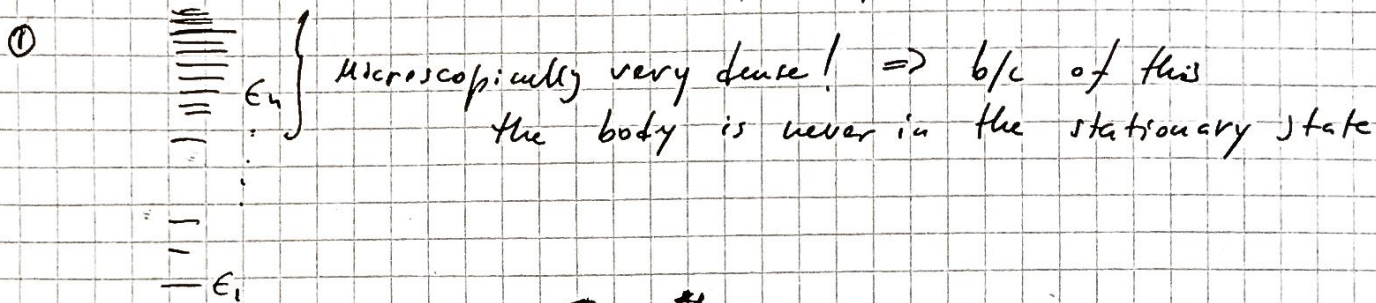 ① ϵn } Microscopically very dense! => b/c of this
the body is never in the stationary state
ϵ1